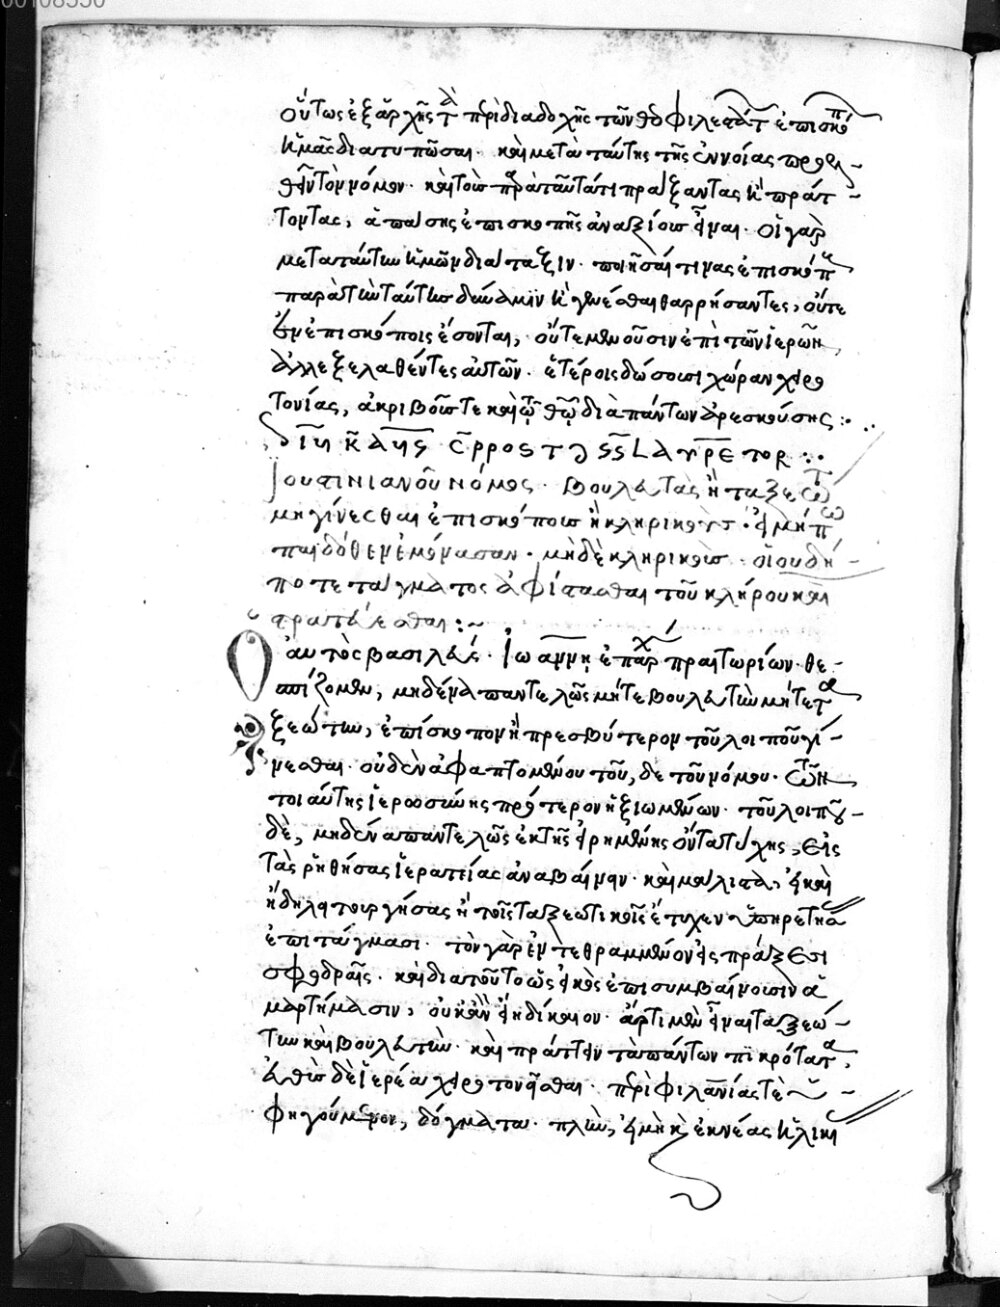 οὕτως ἐξ ἀρχῆς τὰ περὶ διαδοχῆς τῶν θεοφιλεστάτ ἐπισκόπ
ἡμᾶς διατυπῶσαι. καὶ μετὰ ταύτης τῆς ἐννοίας προελ-
θεῖν τὸν νόμον. καὶ τοὺς παρὰ ταῦτά τι πράξαντας ἢ πράτ-
τοντας, ἁπάσης ἐπισκοπῆς ἀναξίους εἶναι. οἱ γὰρ
μετὰ ταύτην ἡμῶν διάταξιν. ποιῆσαί τινας ἐπισκόπ
παρὰ τὴν ταύτης δύναμιν ἢ γενέσθαι θαρρήσαντες, οὔτε
ἐν ἐπισκόποις ἔσονται, οὔτε μενοῦσιν ἐπὶ τῶν ἱερῶν,
ἀλλ' ἐξελαθέντες αὐτῶν. ἑτέροις δώσουσι χώραν χειρο
τονίας, ἀκριβοῦς τε καὶ τῷ θῷ διὰ πάντων ἀρεσκούσης :
Ἰουστινιανοῦ νόμος. βουλευτὰς ἢ ταξεώτ
μὴ γίνεσθαι ἐπισκόπους ἢ κληρικοὺς. εἰ μήπω
παιδόθεν ἐμόνασαν. μηδὲ κληρικοὺς. οἱουδή-
ποτε τάγματος ἀφίστασθαι τοῦ κλήρου καὶ
στρατεύεσθαι :~
Ὁ αὐτὸς βασιλεὺς. Ἰωάννῃ ἐπάρχ πραιτωρίων. θε-
σπίζομεν, μηδένα παντελῶς μήτε βουλευτὴν μήτε τα
ξεώτην, ἐπίσκοπον ἢ πρεσβύτερον τοῦ λοιποῦ γί-
νεσθαι. οὐδὲν ἀφαπτομένου τοῦδε τοῦ νόμου. τῶν
τοιαύτης ἱερωσύνης πρότερον ἠξιωμένων. τοῦ λοιποῦ
δὲ, μηδένα παντελῶς ἐκ τῆς εἰρημένης ὄντα τύχης, εἰς
τὰς ῥηθείσας ἱερατείας ἀναβαίνειν. καὶ μάλιστα, εἰ καὶ
ἤδη λειτουργήσας ἢ τοῖς ταξεωτικοῖς ἔτυχεν ὑπηρετησά
ἐπιτάγμασι. τὸν γὰρ ἐντεθραμμένον εἰσπράξεσι
σφοδραῖς. καὶ διὰ τοῦτο ὡς εἰκὸς ἐπισυμβαίνουσιν ἁ
μαρτήμασιν, οὐκ ἂν εἴη δίκαιον. ἄρτι μὲν εἶναι ταξεώ-
την καὶ βουλευτὴν. καὶ πράττειν τὰ πάντων πικρότατα,
εὐθὺς δὲ ἱερέα χειροτονεῖσθαι. περὶ φιλανίας τὲ ὑ-
φηγούμενον, δόγματα. πλὴν, εἰ μὴ ἐκ νέας ἡλικί